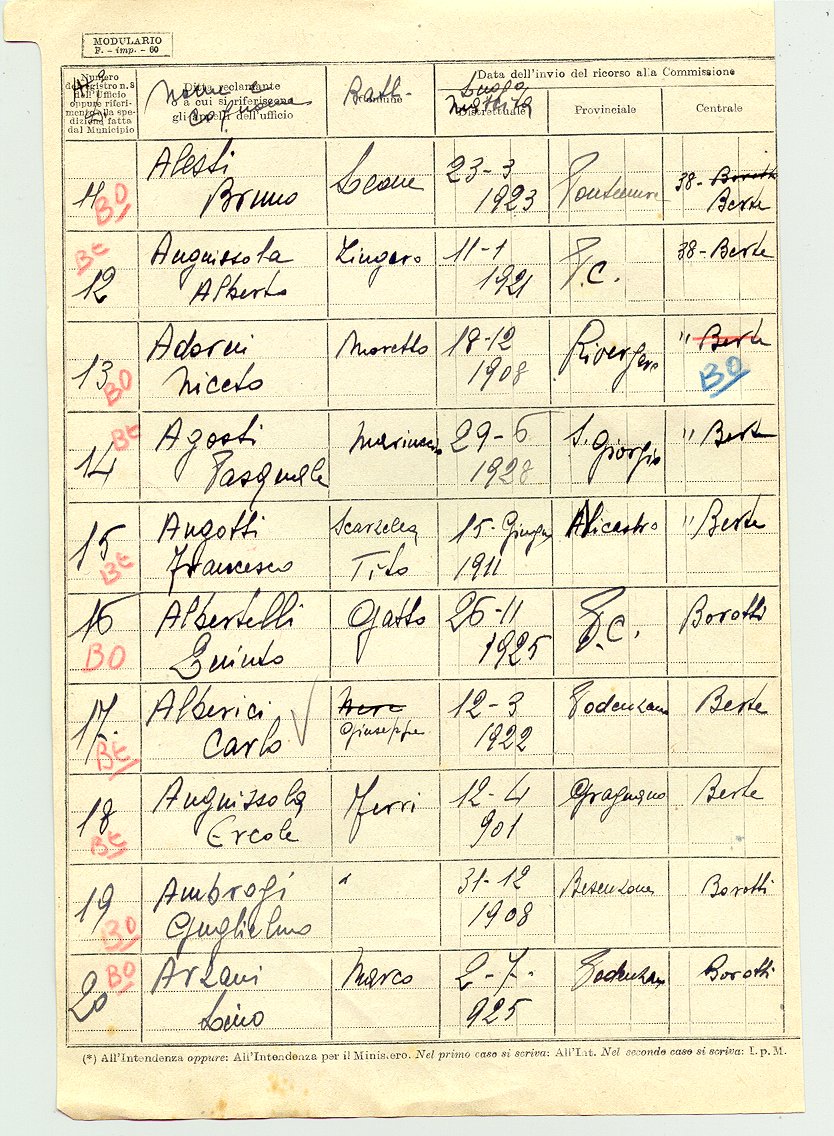 MODULARIO
F. - imp. - 60
Numero
del registro n. 8
dell'Ufficio
oppure riferi-
mento alla spe-
dizione fatta
dal Municipio
Ditta reclamante
a cui si riferiscono
gli appelli dell'ufficio
Nome e
Cognome
Batt.
Comune
Data dell'invio del ricorso alla Commissione
Luogo
nascita
Distrettuale
Provinciale
Centrale
11 BO Alessi Bruno Leone 23-3 1923 Pontenure 38- Borotti Berte
12 Be Anguissola Alberto Zingaro 11-1 1921 P.C. 38- Berte
13 BO Adorni Niceto Moretto 18-12 1908 Rivergaro " Berte BO
14 Be Agosti Pasquale 29-6 1928 S. Giorgio " Berte
15 Be Angotti Francesco Tito 15-Giugno 1911 Nicastro " Berte
16 BO Albertelli Quinto Gatto 26-11 1925 P.C. Borotti
17. Be Alberici Carlo Giuseppe 12-3 1922 Podenzano Berte
18 Be Anguissola Ercole Ferri 12-4 901 Gragnano Berte
19 BO Ambrogi Guglielmo " 31-12 1908 Besenzone Borotti
20 BO Arzani Lino Marco 2-7- 925 Podenzano Borotti
(*) All'Intendenza oppure: All'Intendenza per il Ministero. Nel primo caso si scriva: All'Int. Nel seconde caso si scriva: I. p. M.